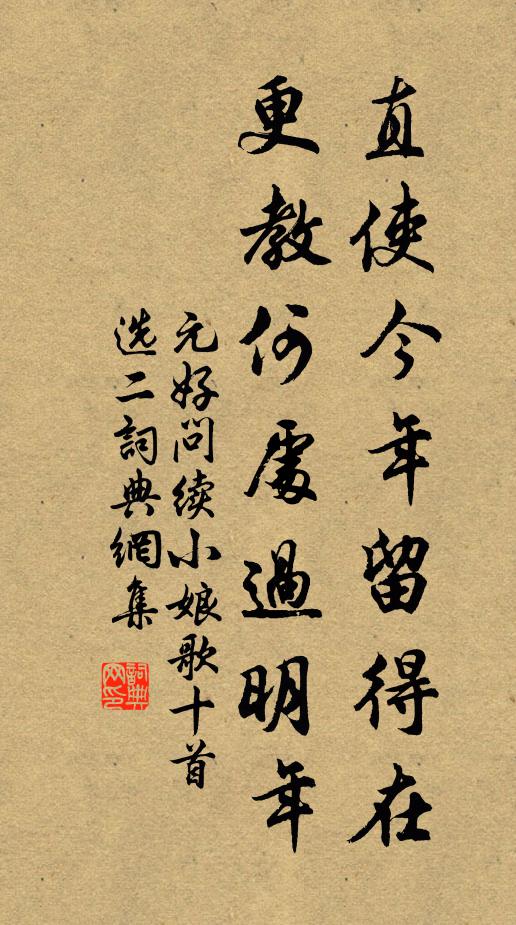 直使今年留得在
更教何處過明年
元好问续小娘歌十首
选二詞典網集
詞典网印